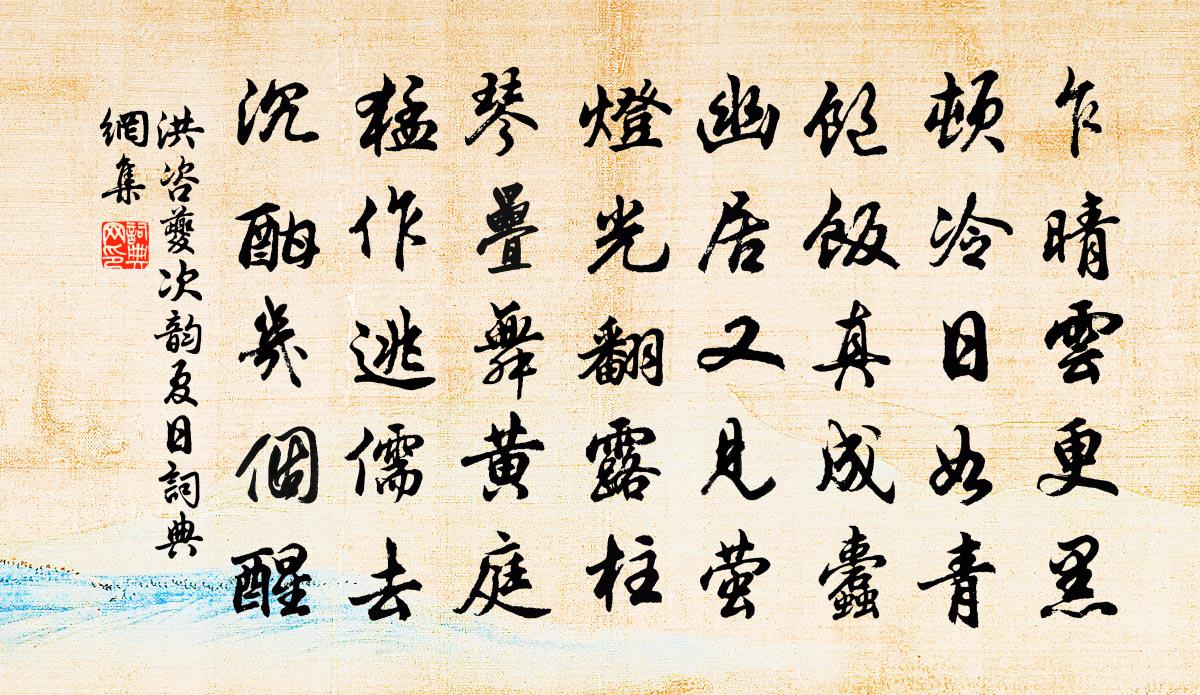 乍晴雲更黑
頓冷日如青
飽飯真成蠹
幽居又見螢
燈光翻露柱
琴疊舞黃庭
猛作逃儒去
沉酣幾個醒
洪咨夔次韵夏日詞典
網集
詞典
网印